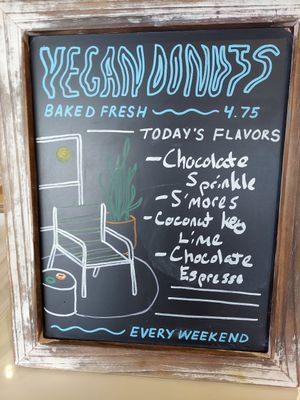 VEGAN DONUTS
BAKED FRESH 4.75
TODAY'S FLAVORS
- Chocolate
Sprinkle
- S'mores
- Coconut key
Lime
- Chocolate
Espresso
EVERY WEEKEND